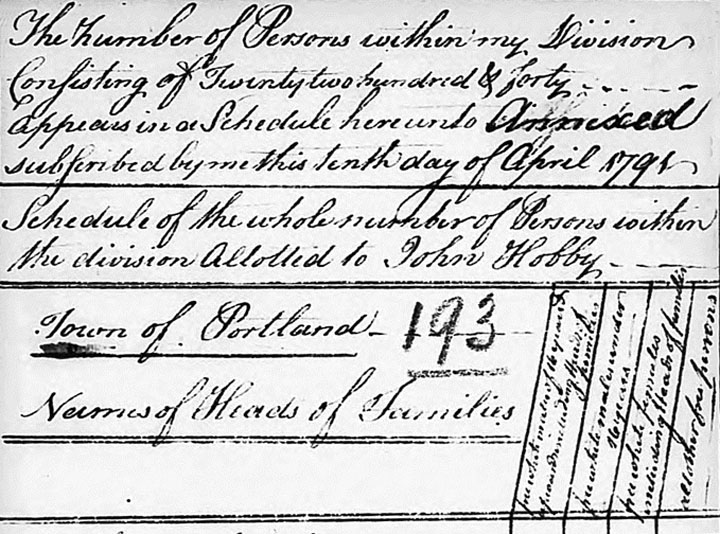 The Number of Persons within my Division
Consisting of Twenty two hundred & forty
appears in a Schedule hereunto Annixed
subscribed by me this tenth day of April 1791
Schedule of the whole number of Persons within
the division Allotted to John Hobby
Town of Portland
193
Names of Heads of Families
free white males of 16 years &
upwards including heads of
families
free white males under
16 years
free white females
including Heads of families
all other free persons